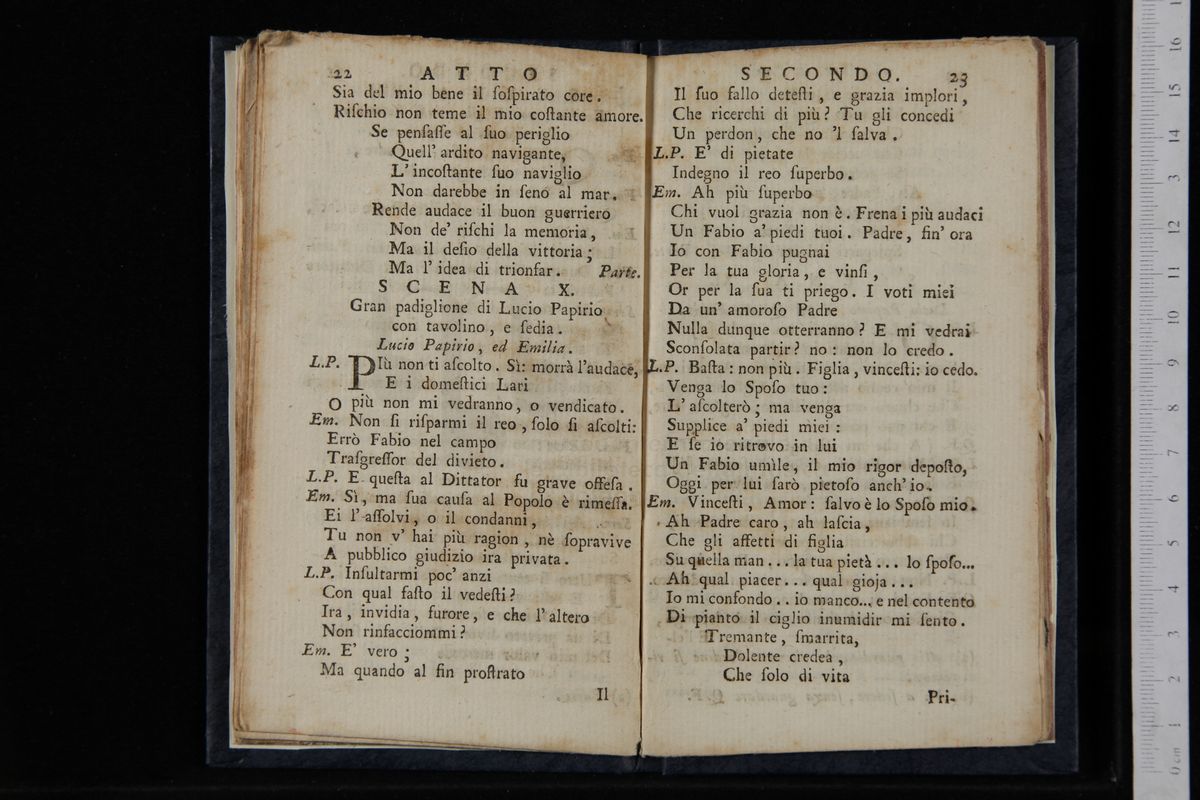 22 ATTO
Sia del mio bene il ſoſpirato core.
Riſchio non teme il mio coſtante amore.
Se penſaſſe al ſuo periglio
Quell' ardito navigante,
L' incoſtante ſuo naviglio
Non darebbe in ſeno al mar.
Rende audace il buon guerriero
Non de' riſchi la memoria,
Ma il deſio della vittoria;
Ma l' idea di trionfar. Parte.
SCENA X.
Gran padiglione di Lucio Papirio
con tavolino, e ſedia.
Lucio Papirio, ed Emilia.
L.P. PIù non ti aſcolto. Sì: morrà l'audace,
E i domeſtici Lari
O più non mi vedranno, o vendicato.
Em. Non ſi riſparmi il reo, ſolo ſi aſcolti:
Errò Fabio nel campo
Traſgreſſor del divieto.
L.P. E queſta al Dittator fu grave offeſa.
Em. Sì, ma ſua cauſa al Popolo è rimeſſa.
Ei l' aſſolvi, o il condanni,
Tu non v' hai più ragion, nè ſopravive
A pubblico giudizio ira privata.
L.P. Inſultarmi poc' anzi
Con qual faſto il vedeſti?
Ira, invidia, furore, e che l' altero
Non rinfacciommi?
Em. E' vero;
Ma quando al fin proſtrato
Il
SECONDO. 23
Il ſuo fallo deteſti, e grazia implori,
Che ricerchi di più? Tu gli concedi
Un perdon, che no 'l ſalva.
L.P. E' di pietate
Indegno il reo ſuperbo.
Em. Ah più ſuperbo
Chi vuol grazia non è. Frena i più audaci
Un Fabio a' piedi tuoi. Padre, fin' ora
Io con Fabio pugnai
Per la tua gloria, e vinſi,
Or per la ſua ti priego. I voti miei
Da un' amoroſo Padre
Nulla dunque otterranno? E mi vedrai
Sconſolata partir? no: non lo credo.
L.P. Baſta: non più. Figlia, vinceſti: io cedo.
Venga lo Spoſo tuo:
L' aſcolterò; ma venga
Supplice a' piedi miei:
E ſe io ritrovo in lui
Un Fabio umìle, il mio rigor depoſto,
Oggi per lui ſarò pietoſo anch' io.
Em. Vinceſti, Amor: ſalvo è lo Spoſo mio.
Ah Padre caro, ah laſcia,
Che gli affetti di figlia
Su quella man... la tua pietà... lo ſpoſo...
Ah qual piacer... qual gioja...
Io mi confondo.. io manco... e nel contento
Di pianto il ciglio inumidir mi ſento.
Tremante, ſmarrita,
Dolente credea,
Che ſolo di vita
Pri-
0 cm 1 2 3 4 5 6 7 8 9 10 11 12 13 14 15 16